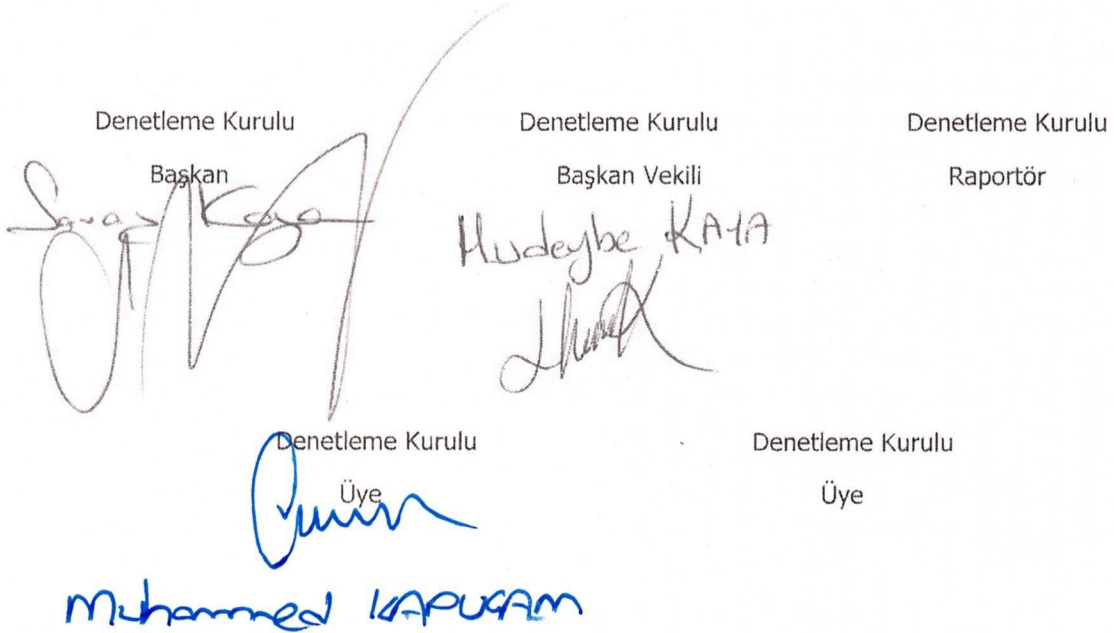 Denetleme Kurulu
Başkan
Savaş Kaya
Denetleme Kurulu
Başkan Vekili
Hudeybe KAYA
Denetleme Kurulu
Raportör
Denetleme Kurulu
Üye
Muhammed
Denetleme Kurulu
Üye